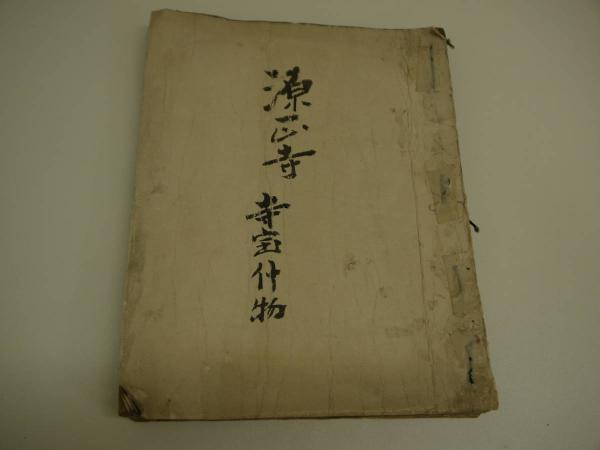 源正寺
寺宝什物